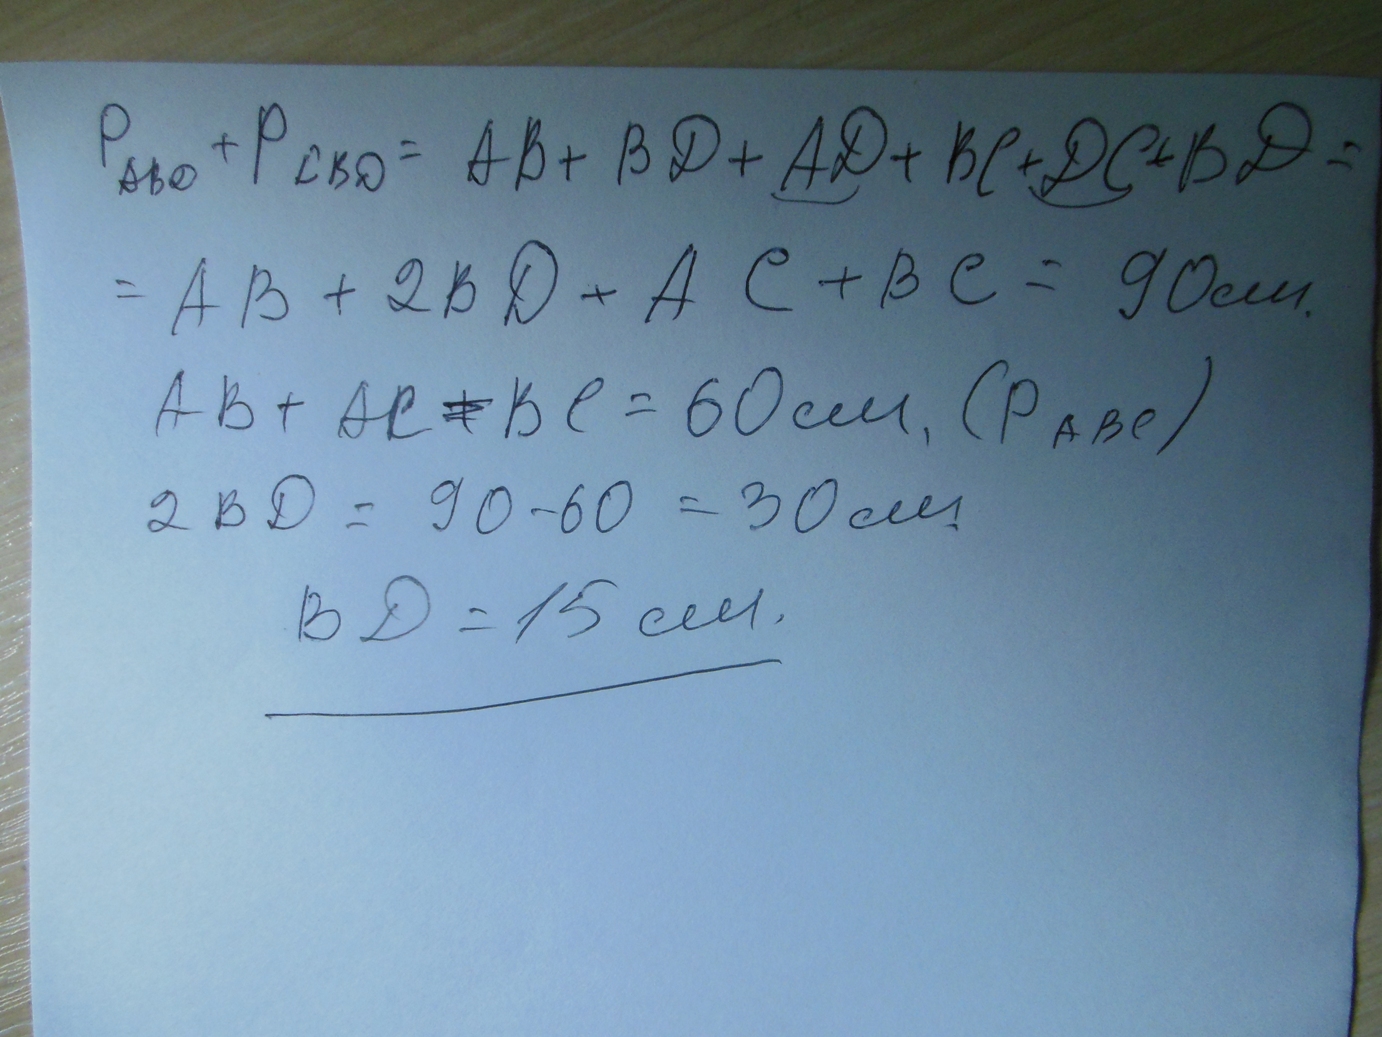 P ABD + P CBD = AB + BD + AD + BC + DC + BD =
= AB + 2BD + AC + BC = 90см.
AB + AC + BC = 60см, (P ABC)
2BD = 90-60 = 30см
BD = 15см.